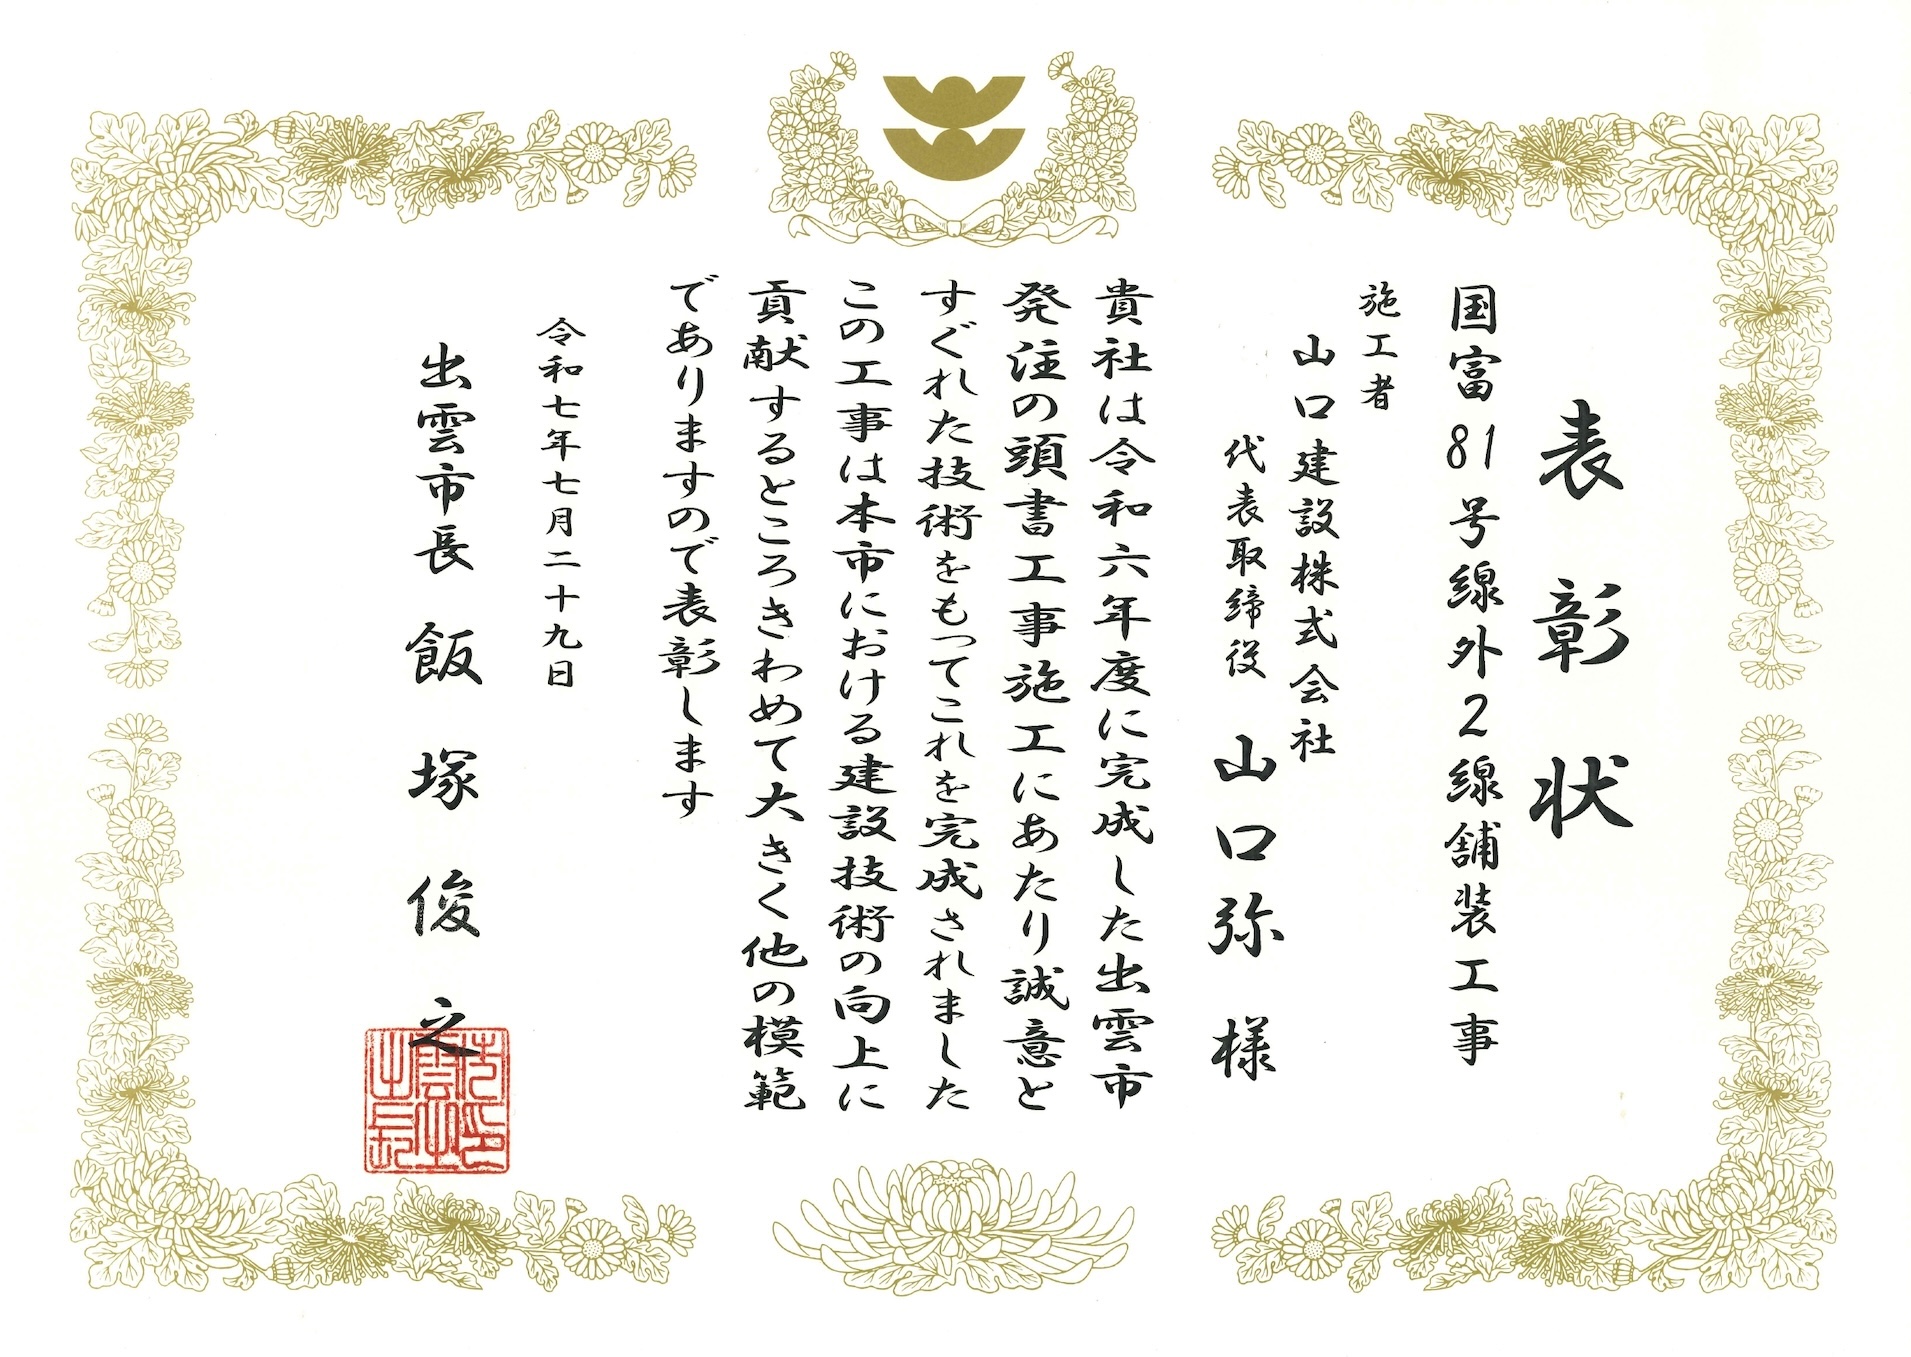 表彰状
国富81号線外2線舗装工事
施工者
山口建設株式会社
代表取締役 山口弥 様
貴社は令和六年度に完成した出雲市
発注の頭書工事施工にあたり誠意と
すぐれた技術をもってこれを完成されました
この工事は本市における建設技術の向上に
貢献するところきわめて大きく他の模範
でありますので表彰します
令和七年七月二十九日
出雲市長 飯塚俊之